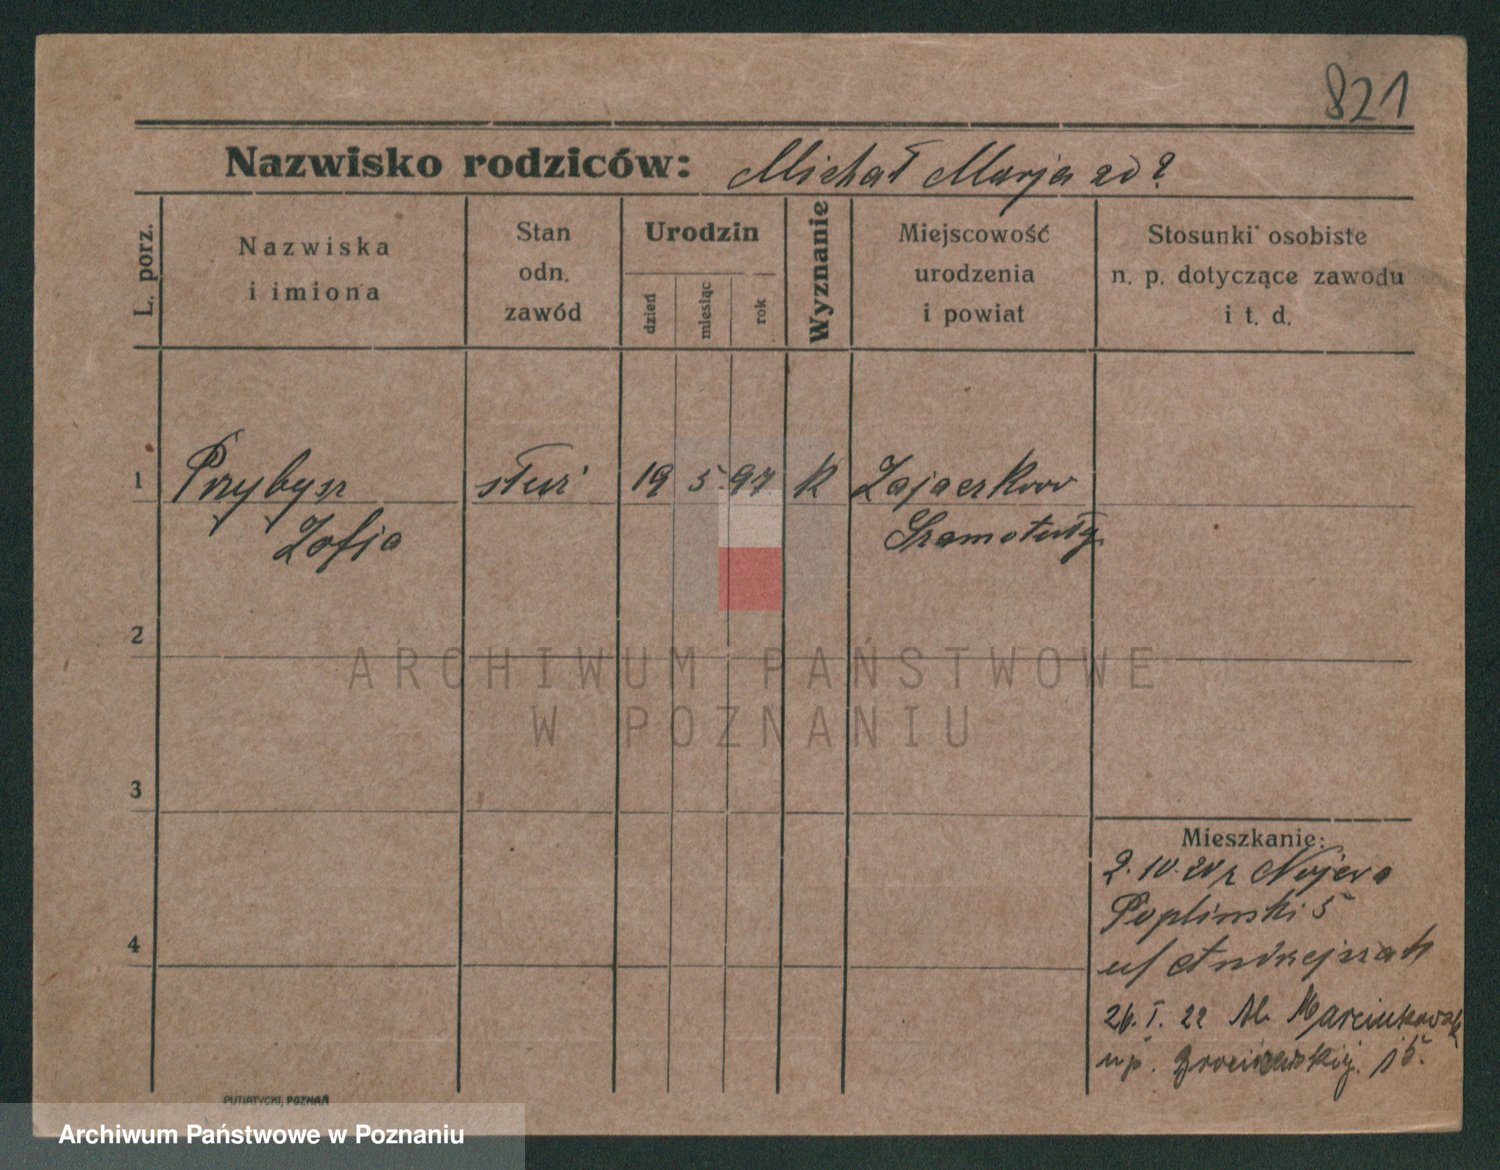 821
Nazwisko rodziców: Michał Marja zd ?
L. porz.
Nazwiska
i imiona
Stan
odn.
zawód
Urodzin
dzień
miesiąc
rok
Wyznanie
Miejscowość
urodzenia
i powiat
Stosunki osobiste
n. p. dotyczące zawodu
i t. d.
1 Przybysz służ 19 5. 97. k
Zofja Szamotuły.
2
ARCHIWUM PAŃSTWOWE
W POZNANIU
3
4
Mieszkanie:
2. 10. 20
Poplinski 5
u/
26. I. 22 Al. Marcinkowsk
u p. 15.
PUTIATYCKI, POZNAŃ
Archiwum Państwowe w Poznaniu